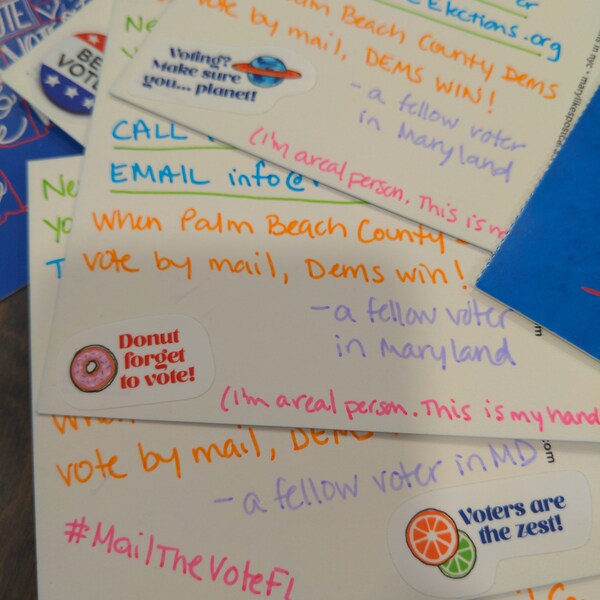 Elections.org
Palm Beach County Dems
vote by mail, DEMS WIN!
- a fellow voter
in Maryland
(I'm a real person. This is
Voting?
Make sure
you... planet!
BE
VOTE
CALL
EMAIL info@
When Palm Beach County
vote by mail, Dems win!
- a fellow voter
in Maryland
(I'm a real person. This is my hand
Donut
forget
to vote!
vote by mail, DEMS
- a fellow voter in MD
#MailTheVoteFL
Voters are
the zest!